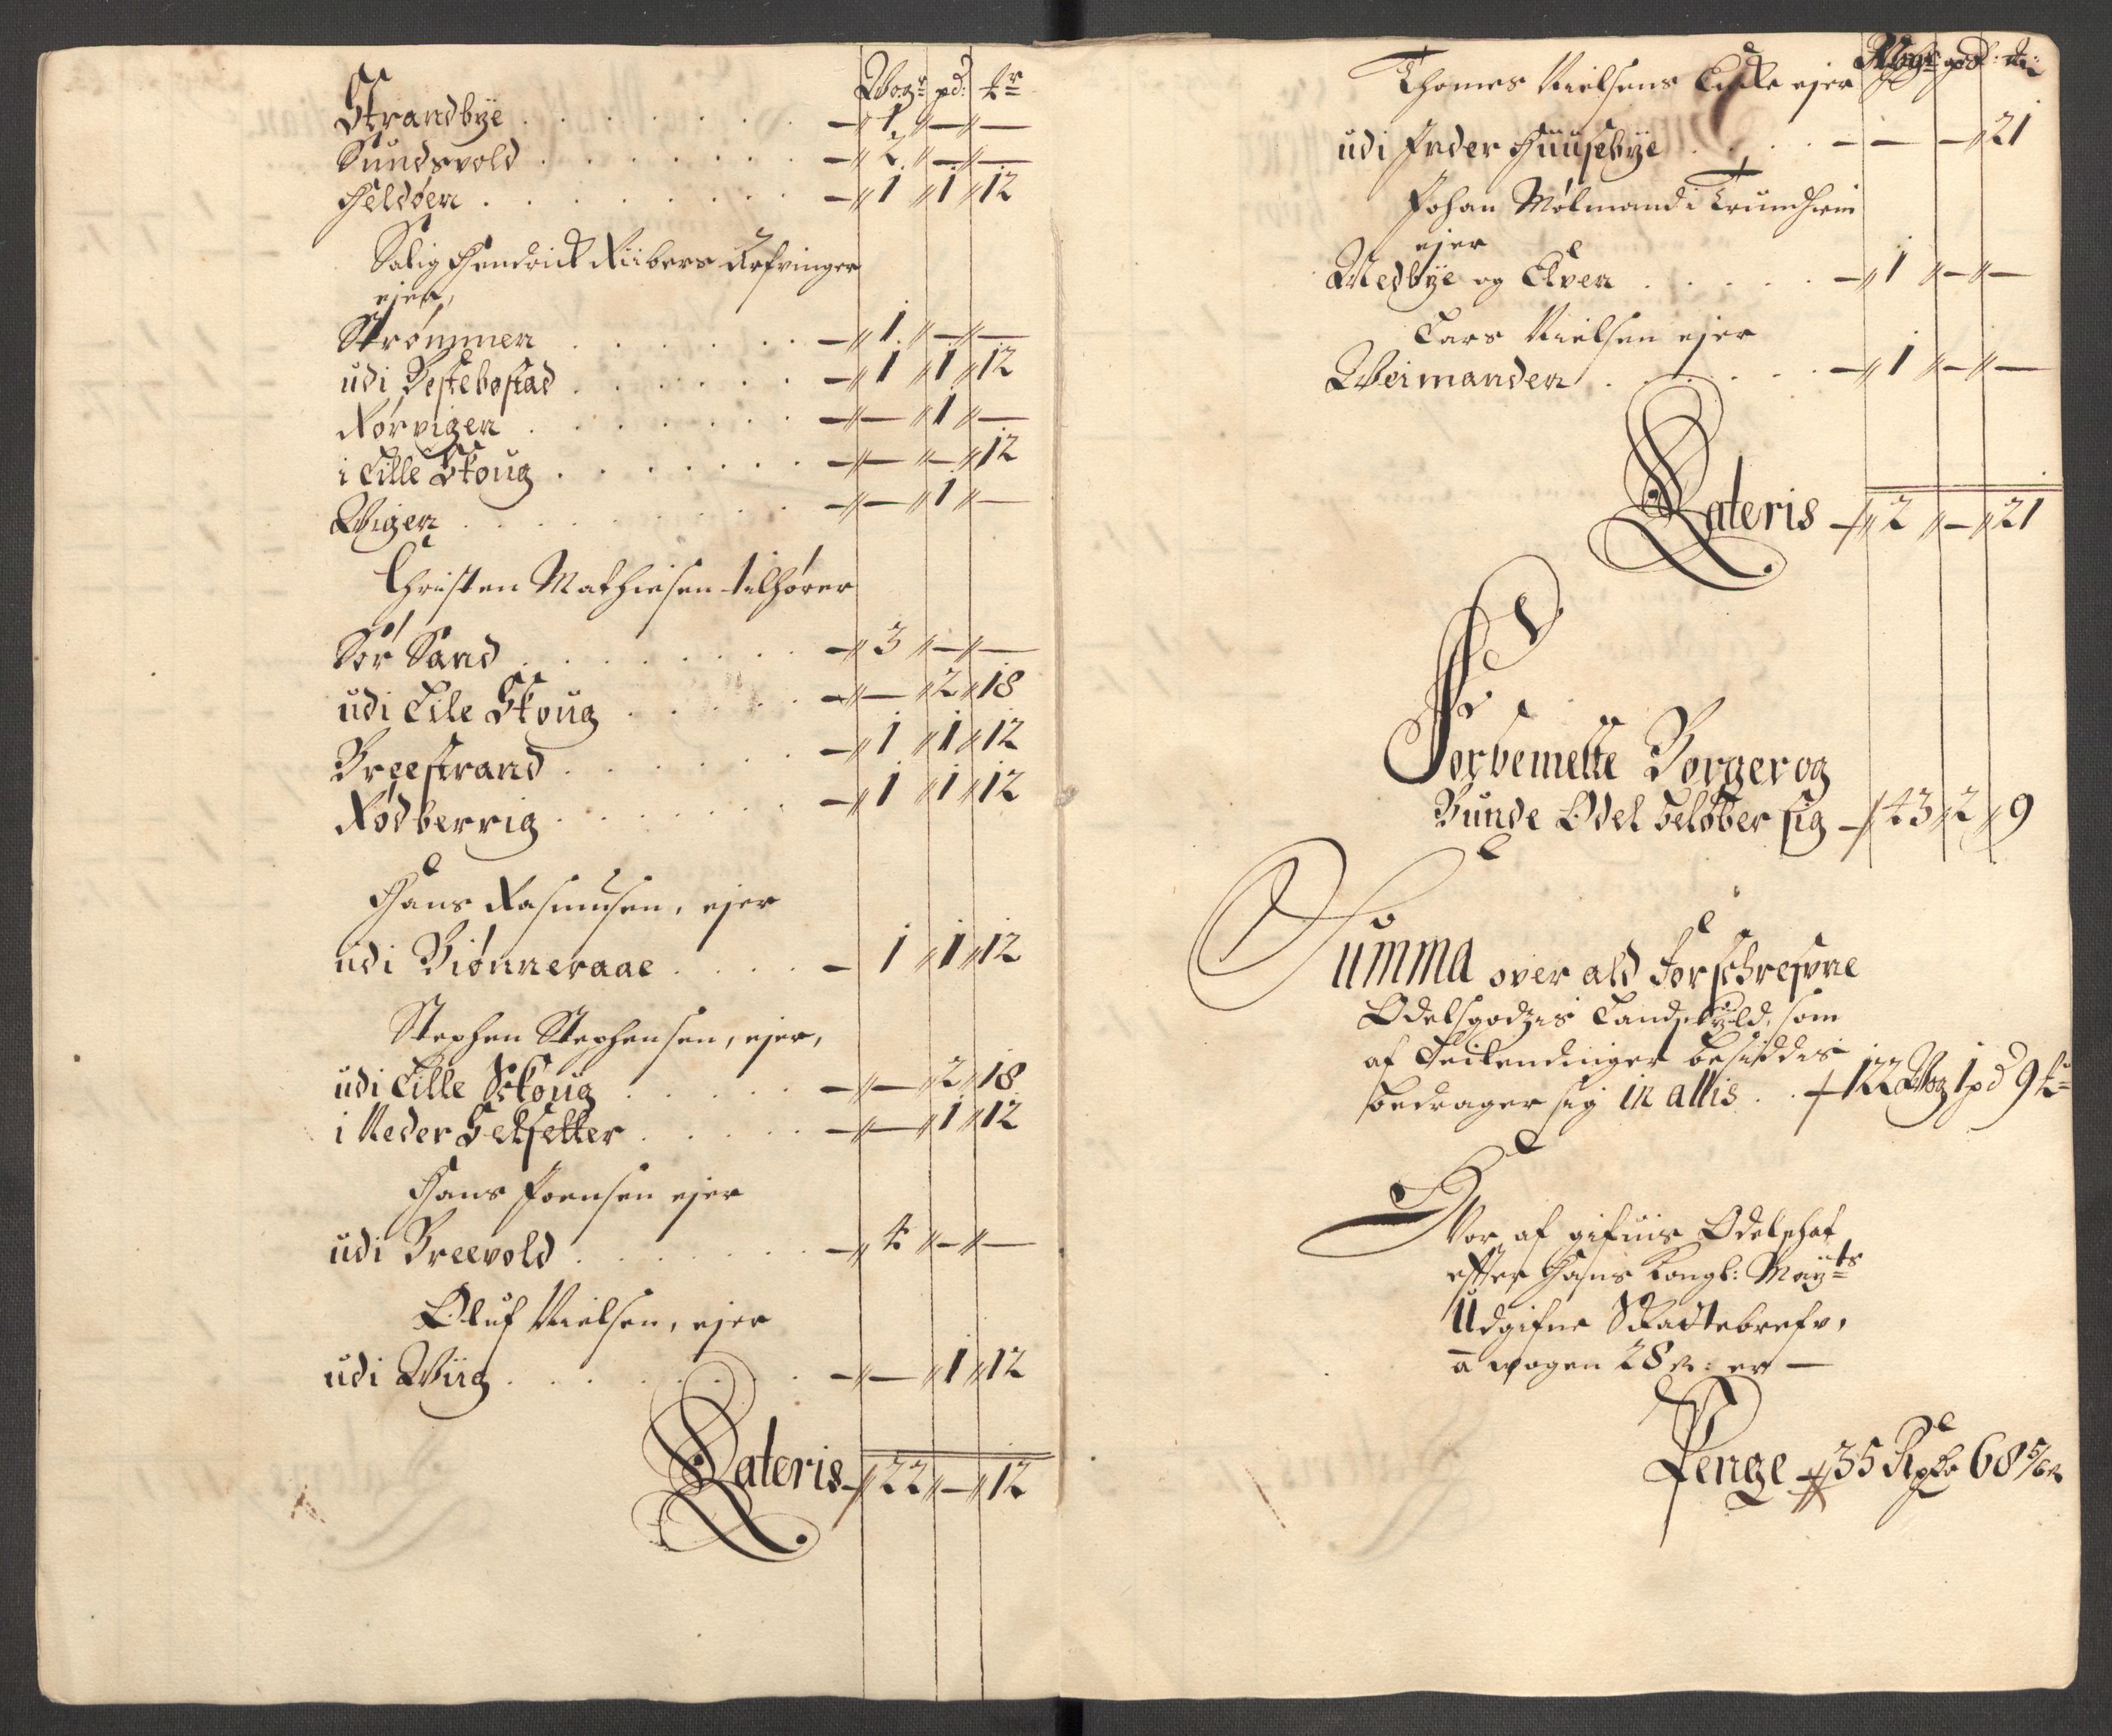 Wogr pd: tr
Strandbÿe . . . . . . . — 1 — —
Sundsvold . . . . . . . — 2 — —
Heldøen . . . . . . . . — 1 1 12
Salig Hendrick Riibers Arfvinger
ejer,
Strømmen . . . . . . — 1 — —
udi Bestebostad . . . . . . — 1 1 12
Rørvigen . . . . . . . — — 1 —
i Lille Skoug . . . . . . . — — — 12
Wigen . . . . . . . . — — 1 —
Christen Mathiesen tilhører
Sør Sand . . . . . . . — 3 — —
udi Lile Skoug . . . . . — — 2 18
Breestrand . . . . . . — 1 1 12
Rødberrig . . . . . . . — 1 1 12
Hans Rasmusen, ejer
udi Biønneraae . . . . — 1 1 12
Stephen Stephensen, ejer,
udi Lille Skoug . . . . . — — 2 18
i Neder Selsetter . . . . . — — 1 12
Hans Joensen ejer
udi Breevold . . . . . . . — 4 — —
Oluf Nielsen, ejer
udi Wiig . . . . . . . . — — 1 12
Lateris — 22 — 12
Wogr pd: tr:
Thomes Nielsens Encke ejer
udi Inder Huusebÿe . . . . — — — 21
Johan Mølmand i Trundhiem
ejer
Medbÿe og Elven . . . . . — 1 — —
Lars Nielsen ejer
Weimanden . . . . . . — 1 — —
Lateris — 2 — 21
Forbemelte Borger og
Bunde Odel beløber sig — 43 2 9
Summa over ald forschrefvne
Odelsgodzis Landschÿld, som
af Leilendinger besiddis
bedrager sig in allis . . 122 Wog 1 pd 9 tr
Hvor af gifvis Odelschat
effter Hans Kongl: Maÿts
Udgifne Skattebrefv,
a wogen 28 s: er —
Penge 35 Rdr 68 5/6 s